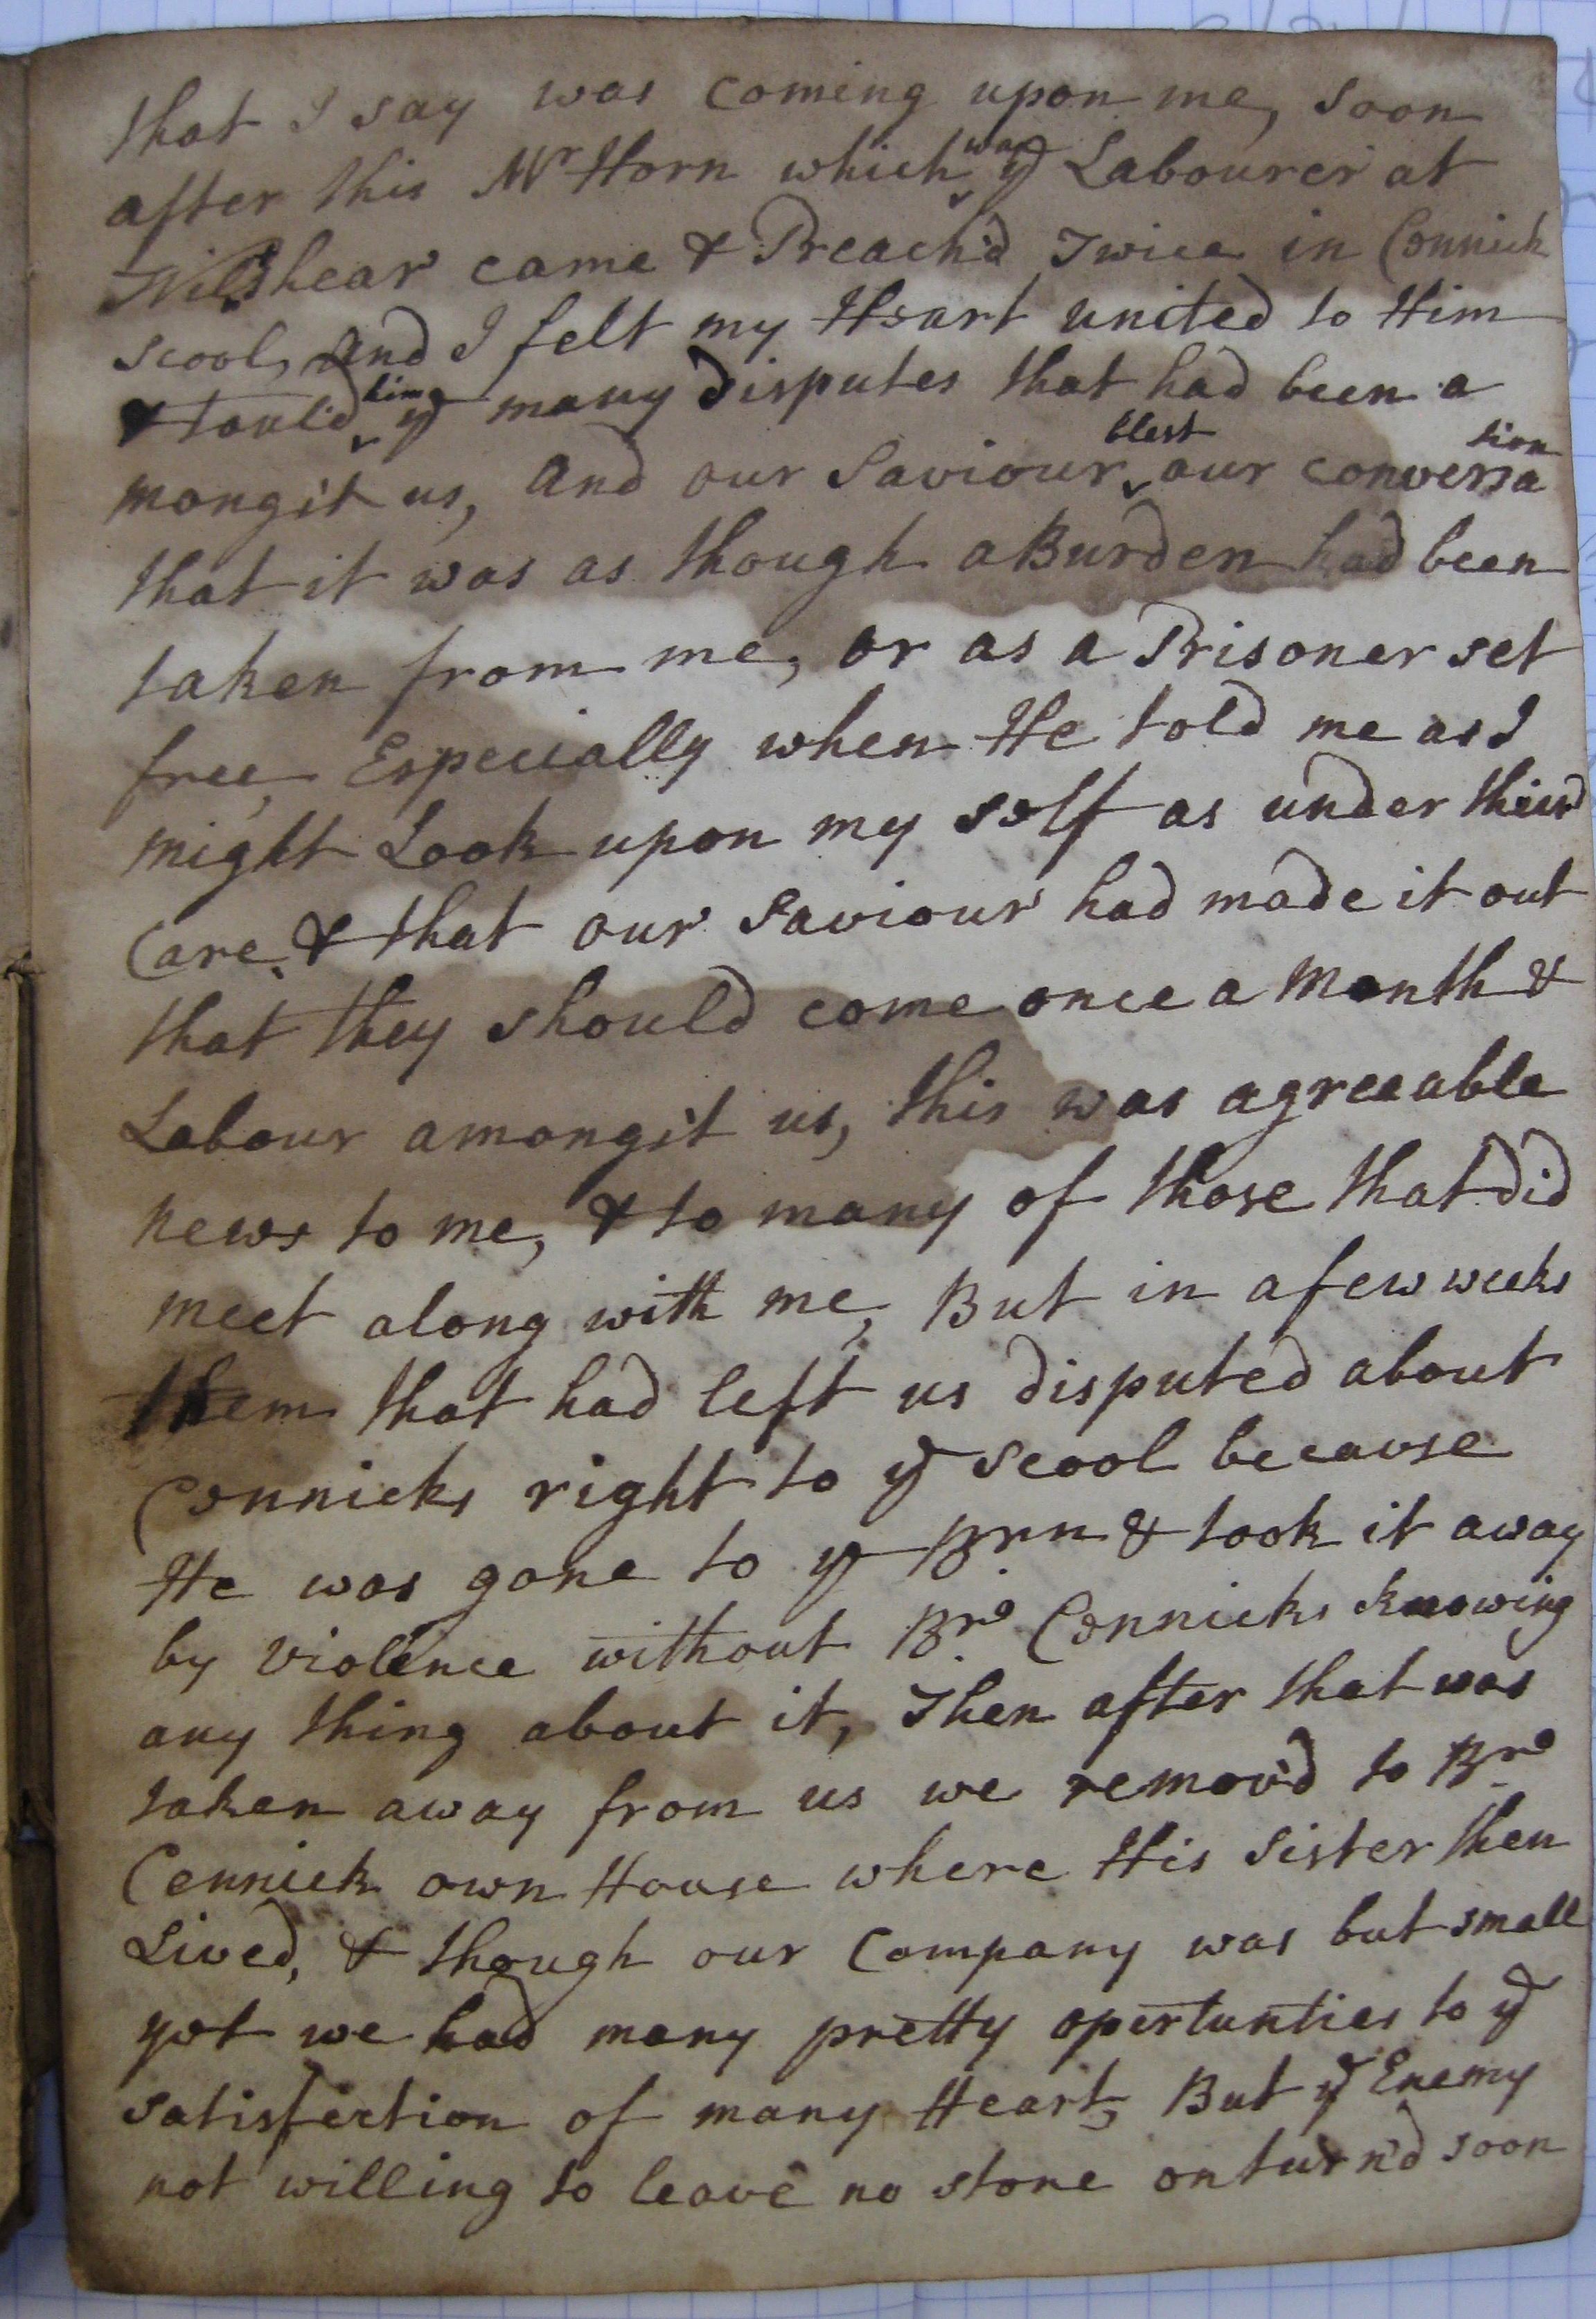 that I say was coming upon me, soon
after this Mr Horn which was ye Labourer at
Wilshear came & Preach'd Twice in Connick
scool, and I felt my Heart united to Him
& tould him ye many disputes that had been a
mongst us, and our Saviour blest our conversation
that it was as though a Burden had been
taken from me, or as a Prisoner set
free, Especially when He told me as I
might Look upon my self as under thier
Care, & that our Saviour had made it out
that they should come once a Month &
Labour amongst us, this was agreeable
news to me, & to many of those that did
meet along with me, But in a few weeks
them that had left us disputed about
Connicks right to ye scool because
He was gone to ye Brn & took it away
by violence without Bro Connicks knowing
any thing about it, Then after that was
taken away from us we remov'd to Bro
Cennick own House where His Sister then
Lived, & though our Company was but small
yet we had many pretty opertunties to ye
satisfection of many Heart, But ye Enemy
not willing to leave no stone onturn'd soon